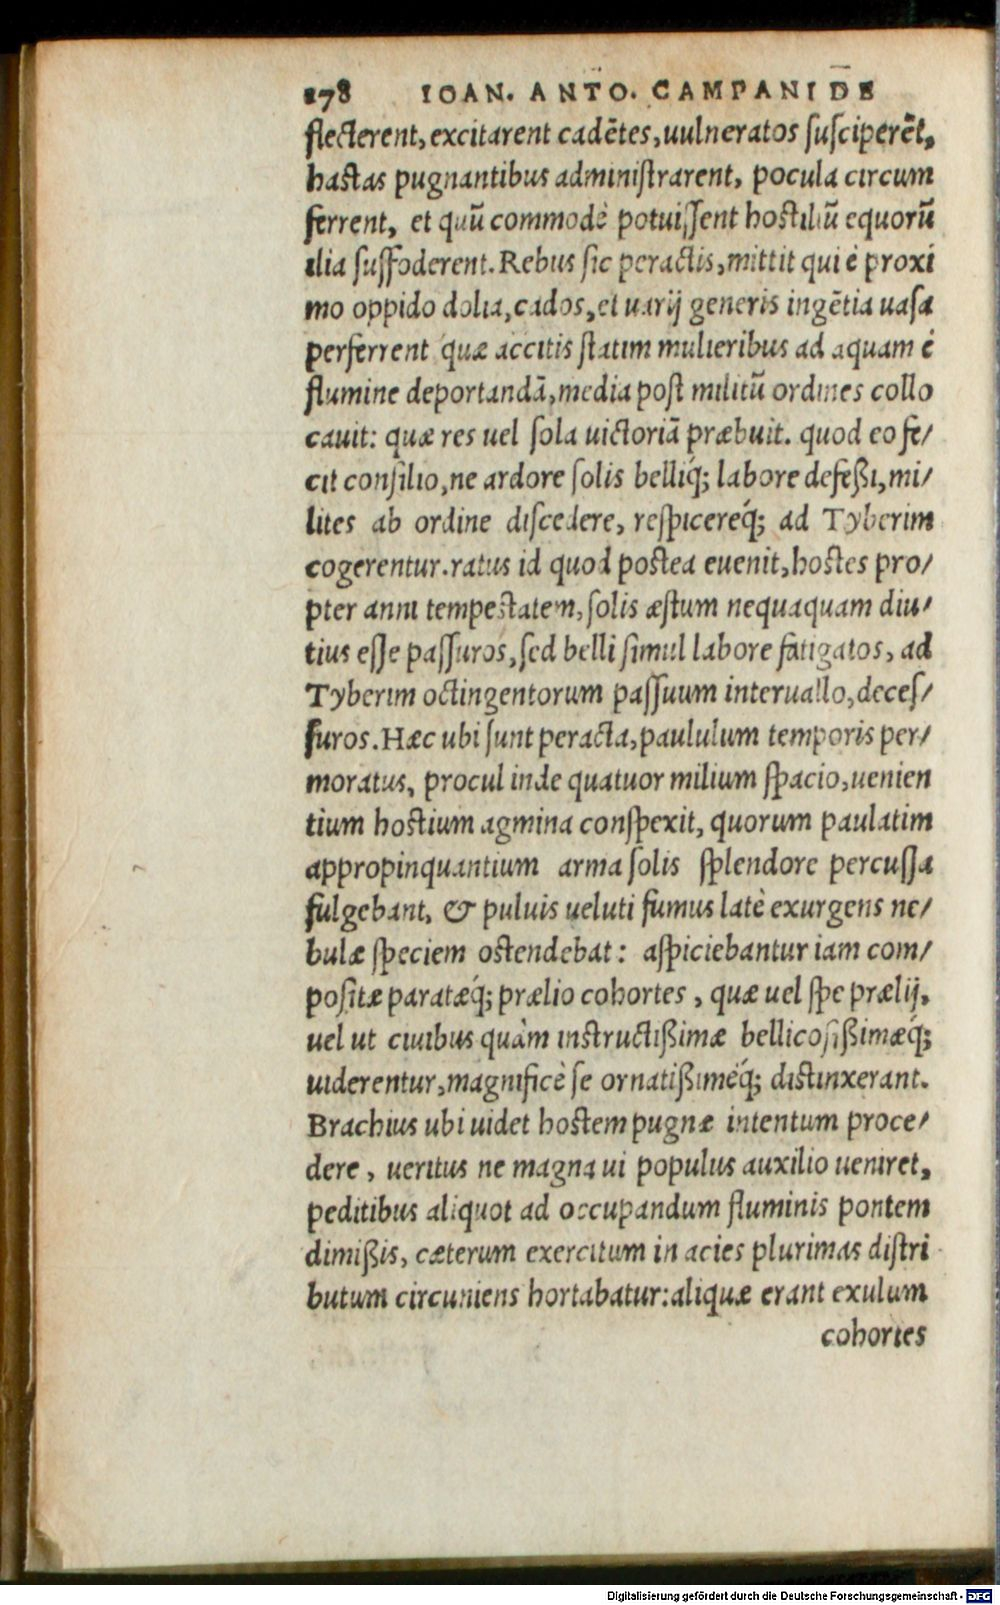 178 IOAN. ANTO. CAMPANI DE
flecterent, excitarent cadētes, uulneratos susciperēt,
hastas pugnantibus administrarent, pocula circum
ferrent, et quū commodè potuissent hostiliū equorū
ilia suffoderent. Rebus sic peractis, mittit qui è proxi
mo oppido dolia, cados, et uarij generis ingētia uasa
perferrent quæ accitis statim mulieribus ad aquam è
flumine deportandā, media post militū ordines collo
cauit: quæ res uel sola uictoriā præbuit. quod eo fe/
cit consilio, ne ardore solis belliq́; labore defeßi, mi/
lites ab ordine discedere, respicereq́; ad Tyberim
cogerentur. ratus id quod postea euenit, hostes pro/
pter anni tempestatem, solis æstum nequaquam diu/
tius esse passuros, sed belli simul labore fatigatos, ad
Tyberim octingentorum passuum interuallo, deces/
suros. Hæc ubi sunt peracta, paululum temporis per/
moratus, procul inde quatuor milium spacio, uenien
tium hostium agmina conspexit, quorum paulatim
appropinquantium arma solis splendore percussa
fulgebant, & puluis ueluti fumus latè exurgens ne/
bulæ speciem ostendebat: aspiciebantur iam com/
positæ paratæq́; prælio cohortes, quæ uel spe prælij,
uel ut ciuibus quàm instructißimæ bellicosißimæq́;
uiderentur, magnificè se ornatißimeq́; distinxerant.
Brachius ubi uidet hostem pugnæ intentum proce/
dere, ueritus ne magna ui populus auxilio ueniret,
peditibus aliquot ad occupandum fluminis pontem
dimißis, cæterum exercitum in acies plurimas distri
butum circuniens hortabatur: aliquæ erant exulum
cohortes
Digitalisierung gefördert durch die Deutsche Forschungsgemeinschaft - DFG